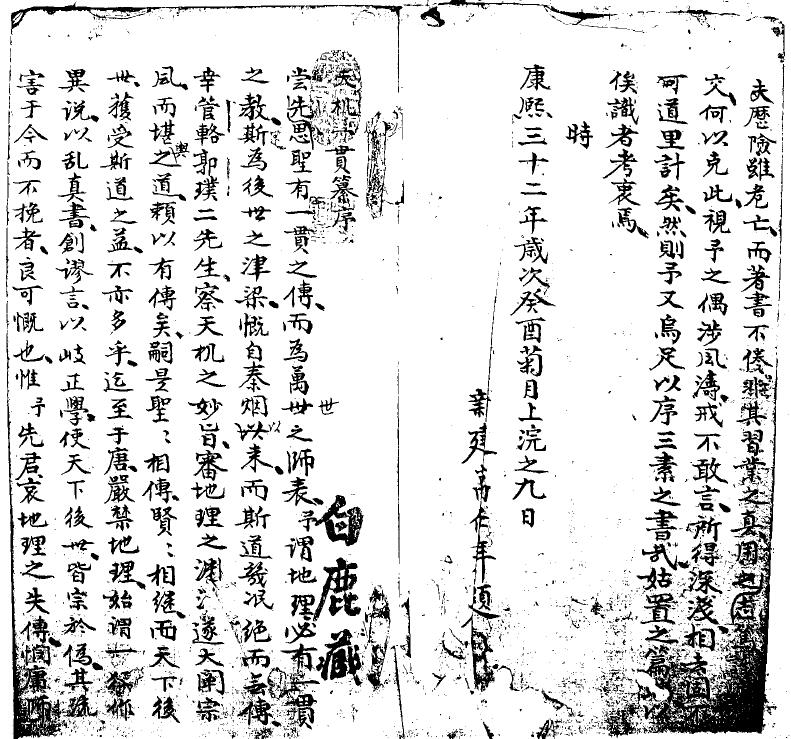 夫歷險雖危亡、而著書不倦、雖其習業之真、固也志
交、何以克此、視予之偶涉風濤、戒不敢言、所得深淺、相去固不
可道里計矣、然則予又烏足以序三素之書哉、姑置之篇 以
俟識者考衷焉、
時
康熙三十二年歲次癸酉菊月上浣之九日
年
天机一貫纂序
嘗先思聖有一貫之傳、而為萬世之師表、予謂地理必有一貫
之教、斯為後世之津梁、慨自秦烟以来、而斯道幾泯絕而無傳、
幸管輅郭璞二先生、察天机之妙旨、審地理之淵 遂大闡宗
風、而堪輿之道、賴以有傳矣、嗣是聖:相傳、賢:相継、而天下後
世、獲受斯道之益、不亦多乎、迄至于唐、嚴禁地理、始謂一 作
異说、以乱真書、創謬言、以岐正學、使天下後世、皆宗於偽、其疏
害于今而不挽者、良可慨也、惟予先君哀地理之失傳、憫庸師
白鹿藏